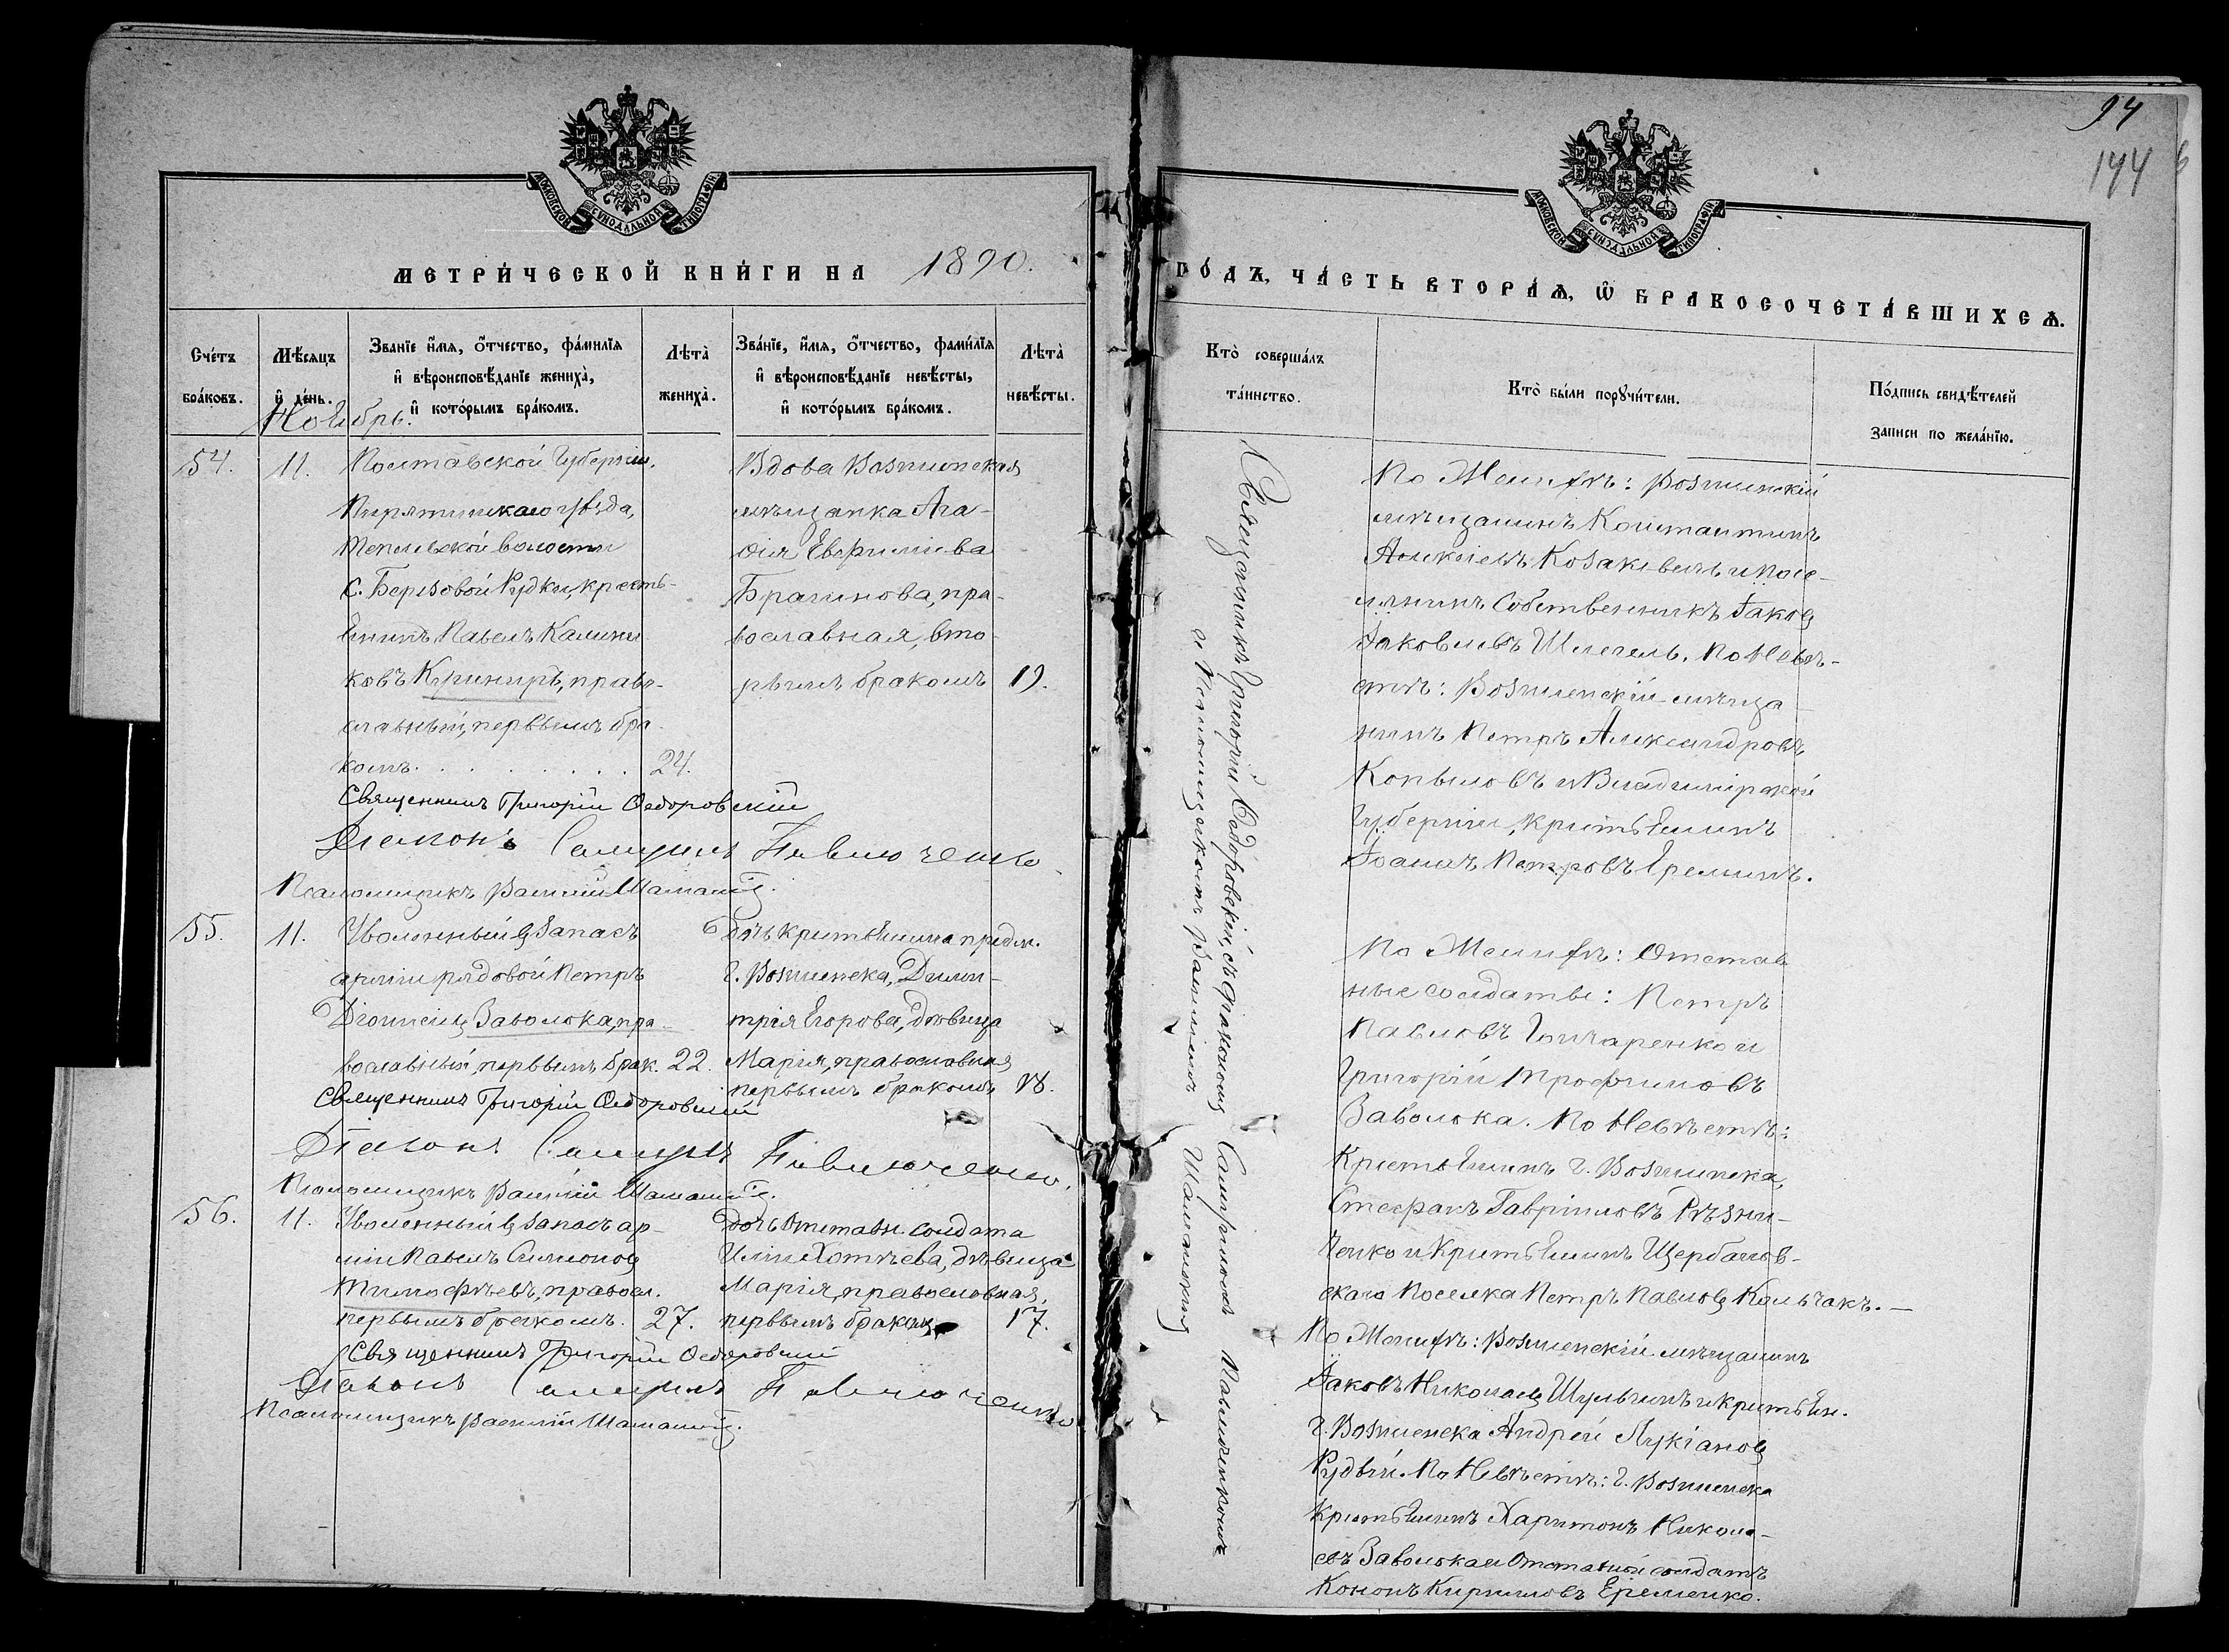 94
144
МОСКОВСКОЙ СѴНОДАЛЬНОЙ ТИПОГРАФІИ
МОСКОВСКОЙ СѴНОДАЛЬНОЙ ТИПОГРАФІИ
МЕТРИ́ЧЕСКОЙ КНИ́ГИ НА 1890.
ГО́ДЪ, ЧА́СТЬ ВТОРА́Ѧ, Ѽ БРАКОСОЧЕТА́ВШИХСѦ.
Сче́тъ бра́ковъ.
Мѣ́сяцъ и҆ де́нь.
Зва́нїе и҆́мя, ѻ҆́тчество, фамі́лїя
и҆ вѣроисповѣ́данїе жениха̀,
и҆ кото́рымъ бра́комъ.
Лѣта̀ жениха̀.
Зва́нїе, и҆́мя, ѻ҆́тчество, фамі́лїя
и҆ вѣроисповѣ́данїе невѣ́сты,
и҆ кото́рымъ бра́комъ.
Лѣта̀ невѣ́сты.
Кто̀ соверша́лъ та́инство.
Кто̀ бы́ли порꙋчи́тели.
По́дпись свидѣ́телей
записи по жела́нїю.
Ноябрь.
54.
11.
Полтавской Губерніи,
Пирятинскаго уѣзда,
волости
с. Березовой Рудки, кресть-
янинъ Павелъ Калини-
ковъ Кушниръ, право-
славный, первымъ бра-
комъ. . . . . . . . 24.
Вдова Вознесенская
мѣщанка Ага-
фія Евфиміева
Брагинова, пра-
вославная, вто-
рымъ бракомъ 19.
Священникъ Григорій Федоровскій
Діаконъ Самуилъ Павлюченко
Псаломщикъ Василій
55.
11.
Уволенный въ запасъ
арміи рядовой Петръ
Діонисіевъ Заволока, пра-
вославный, первымъ брак. 22.
Дочь крестьянина предм.
г. Вознесенска, Дими-
трія Егорова, дѣвица
Марія, православная
первымъ бракомъ 18.
Священникъ Григорій Федоровскій
Діаконъ Самуилъ Павлюченко.
Псаломщикъ Василій
56.
11.
Уволенный въ запасъ ар-
міи Павелъ Симоновъ
Тимофѣевъ, правосл.
первымъ бракомъ. 27.
Дочь отставн. солдата
Иліи Хотѣева, дѣвица
Марія, православная,
первымъ бракомъ 17.
Священникъ Григорій Федоровскій
Діаконъ Самуилъ Павлюченко
Псаломщикъ Василій
Священникъ Григорій Федоровскій, съ діакономъ Самуиломъ Павлюченкомъ
и Псаломщикомъ Василіемъ
По Женихѣ: Вознесенскій
мѣщанинъ Константинъ
Алексѣевъ Козакевичъ и посе-
лянинъ собственникъ Іаковъ
Іаковлевъ Шлегель. По Невѣ-
стѣ: Вознесенскій мѣща-
нинъ Петръ Александровъ
Копыловъ и Владимірской
Губерніи, крестьянинъ
Іоаннъ Петровъ Ереминъ.
По Женихѣ: Отстав-
ные солдаты: Петръ
Павловъ Гончаренко и
Григорій Трофимовъ
Заволока. По Невѣстѣ:
Крестьянинъ г. Вознесенска,
Стефанъ Гавріиловъ Рѣзни-
ченко и Крестьянинъ Щербанов-
скаго поселка Петръ Павловъ Кольчакъ. —
По Женихѣ: Вознесенскій мѣщанинъ
Іаковъ Николаевъ Шульгинъ и крестьян.
г. Вознесенска Андрей Лукіановъ
Рудый. По Невѣстѣ: г. Вознесенска
крестьянинъ Харитонъ Никола-
евъ Заволока и отставной солдатъ
Кононъ Кирилловъ Еременко.